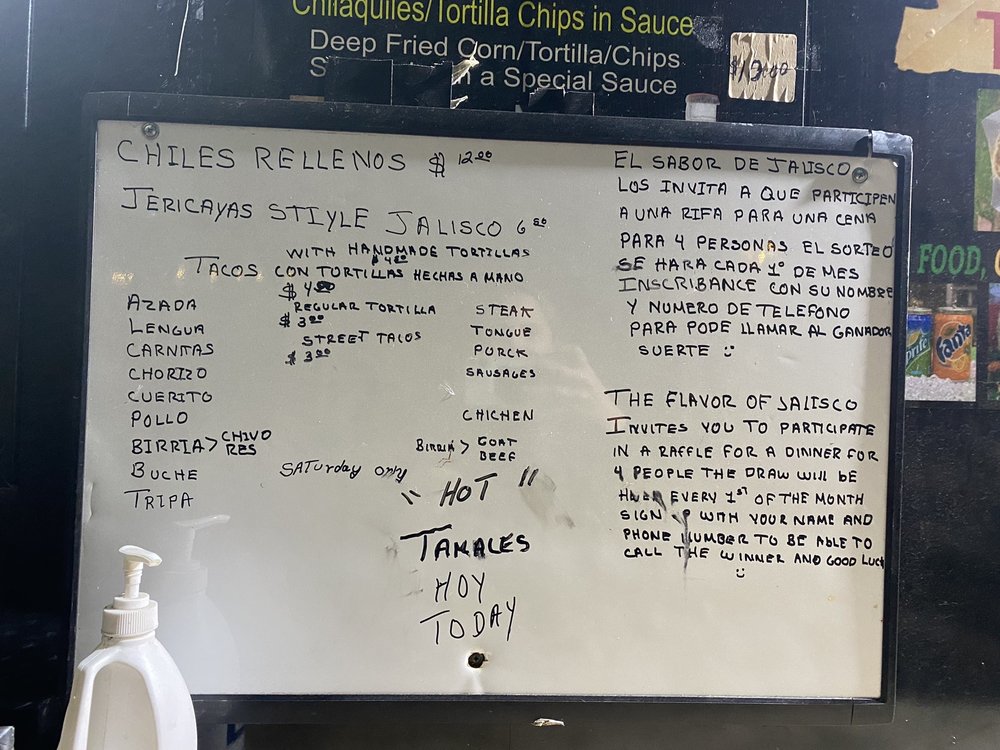 Chilaquiles/Tortilla Chips in Sauce
Deep Fried Corn/Tortilla/Chips
a Special Sauce
CHILES RELLENOS $ 12.00
JERICAYAS STIYLE JALISCO 6.50
WITH HANDMADE TORTILLAS
$4.00
TACOS CON TORTILLAS HECHAS A MANO
$4.00
AZADA REGULAR TORTILLA STEAK
$3.00
LENGUA STREET TACOS TONGUE
CARNTAS $3.00 PORCK
CHORIZO SAUSAGES
CUERITO
POLLO CHICHEN
BIRRIA> CHIVO RES BIRRIA> GOAT BEEF
BUCHE SATURday only
TRIPA
"HOT"
TAMALES
HOY
TODAY
EL SABOR DE JALISCO
LOS INVITA A QUE PARTICIPEN
A UNA RIFA PARA UNA CENA
PARA 4 PERSONAS EL SORTEO
SE HARA CADA 1° DE MES
INSCRIBANCE CON SU NOMBRE
Y NUMERO DE TELEFONO
PARA PODE LLAMAR AL GANADOR
SUERTE
THE FLAVOR OF JALISCO
INVITES YOU TO PARTICIPATE
IN A RAFFLE FOR A DINNER FOR
4 PEOPLE THE DRAW WILL BE
EVERY 1ST OF THE MONTH
SIGN UP WITH YOUR NAME AND
PHONE NUMBER TO BE ABLE TO
CALL THE WINNER AND GOOD LUCK
FOOD,
Sprite
Fanta